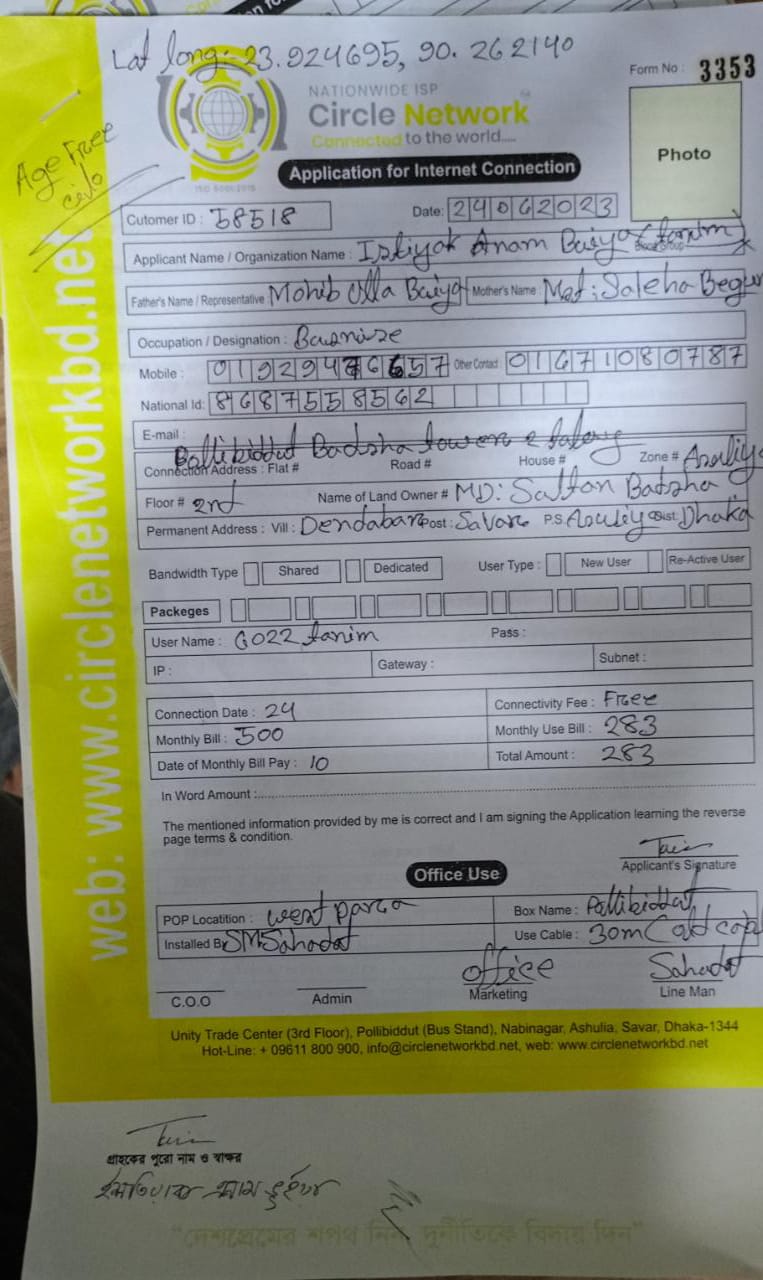 Lat long: 23.924695, 90.262140
Form No : 3353
NATIONWIDE ISP
Circle Network
Connected to the world.....
ISO 9001:2015
Age Free
Photo
Application for Internet Connection
Cutomer ID : 58518
Date: 24062023
Applicant Name / Organization Name : Istiyak Anam Buiya (tanim)
Blood Group
Father's Name / Representative Mohib Ulla Baiya Mother's Name : Mst: Saleha Begum
Occupation / Designation : Busnize
Mobile : 01929476657 Other Contact : 01671080787
National Id: 8687558562
E-mail :
Pollibiddut Badsha tower e
Connection Address : Flat # Road # House # Zone # Asuliya
Floor # 2nd Name of Land Owner # MD: Saltan Badsha
Permanent Address : Vill : Dendabar Post : Savar P.S Asuliya Dist: Dhaka
Bandwidth Type Shared Dedicated User Type : New User Re-Active User
Packeges
User Name : G022 tanim Pass :
IP : Gateway : Subnet :
Connection Date : 24 Connectivity Fee : Free
Monthly Bill : 500 Monthly Use Bill : 283
Date of Monthly Bill Pay : 10 Total Amount : 283
In Word Amount :
The mentioned information provided by me is correct and I am signing the Application learning the reverse
page terms & condition.
Applicant's Signature
Office Use
POP Locatition : west para Box Name : Pollibiddut
Installed By SM Sahadat Use Cable : 30m (old cap
office Sahadat
C.O.O Admin Marketing Line Man
Unity Trade Center (3rd Floor), Pollibiddut (Bus Stand), Nabinagar, Ashulia, Savar, Dhaka-1344
Hot-Line: + 09611 800 900, info@circlenetworkbd.net, web: www.circlenetworkbd.net
web: www.circlenetworkbd.net
গ্রাহকের পুরো নাম ও স্বাক্ষর
"দেশপ্রেমের শপথ নিন, দুর্নীতিকে বিদায় দিন"